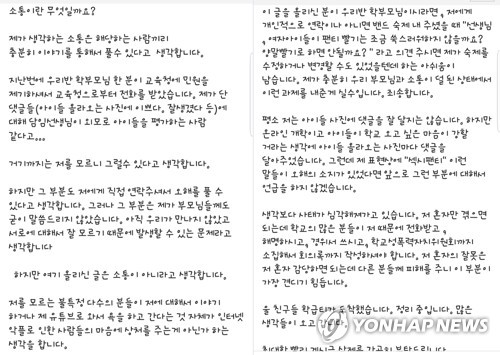 소통이란 무엇일까요?
제가 생각하는 소통은 해당하는 사람끼리
충분히 이야기를 통해서 풀수 있다고 생각합니다.
지난번에 우리반 학부모님 한 분이 교육청에 민원을
제기하셔서 교육청으로부터 전화를 받았습니다. 제가 단
댓글들(아이들 올라오는 사진에 이쁘다. 잘생겼다 등)에
대해 담임선생님이 외모로 아이들을 평가하는 사람
같다고...
거기까지는 저를 모르니 그럴수 있다고 생각합니다.
하지만 그 부분도 저에게 직접 연락주셔서 오해를 풀 수
있다고 생각합니다. 그러나 그 부분은 제가 부모님들께도
굳이 말씀드리지 않았습니다. 아직 우리가 만나지 않았고
서로에 대해서 잘 모르기 때문에 발생할 수 있는 문제라고
생각합니다
하지만 여기 올리신 글은 소통이 아니라고 생각합니다.
저를 모르는 불특정 다수의 분들이 저에 대해서 이야기
하거나 제 유튜브로 와서 욕을 하고 간다는 것 자체가 인터넷
악플로 인한 사람들의 마음에 상처를 주는게 아닌가 하는
생각합니다.
이 글을 올리신 분이 우리반 학부모님이시라면, 저에게
개인적으로 연락이나 아니면 밴드 숙제 내 주셨을 때 "선생님
, 여자아이들이 팬티 빨기는 조금 쑥스러워하지 않을까요?
양말빨기로 하면 안될까요?" 라고 의견 주시면 제가 숙제를
수정하거나 변경할 수도 있었을텐데 하는 아쉬움이
남습니다. 제가 충분히 우리 부모님과 소통이 덜 된상태에서
이런 과제를 내준게 실수입니다. 죄송합니다.
평소 저는 아이들 사진에 댓글 잘 달지 않습니다. 하지만
온라인 개학이고 아이들이 학교 오고 싶은 마음이 강할
거라는 생각에 아이들 올라오는 사진마다 댓글을
달아주었습니다. 그런데 제 표현상에 "섹시팬티" 이런
말들이 오해의 소지가 있었다면 앞으로 그런 부분에 대해서
언급을 하지 않겠습니다.
생각보다 사태가 심각해져가고 있습니다. 저 혼자만 겪으면
되는데 학교의 많은 분들이 저 때문에 전화받고,
해명하시고, 경위서 쓰시고, 학교성폭력자치위원회까지
소집해서 회의록까지 작성하셔야 합니다. 저 혼자의 잘못은
저 혼자 감당하면 되는데 다른 분들께 피해를 주니 이 부분이
가장 견디기 힘듭니다.
울 친구들 학급티가 도착했습니다. 정리 중입니다. 많은
생각들이 오고 갑니다.
YONHAPNEWS